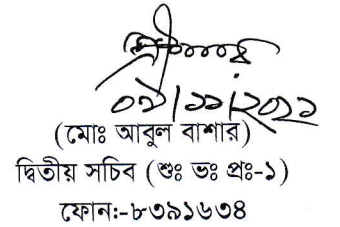 ০৯/১১/২০১১
(মোঃ আবুল বাশার)
দ্বিতীয় সচিব (শুঃ ভঃ প্রঃ-১)
ফোন:-৮৩৯১৬৩৪